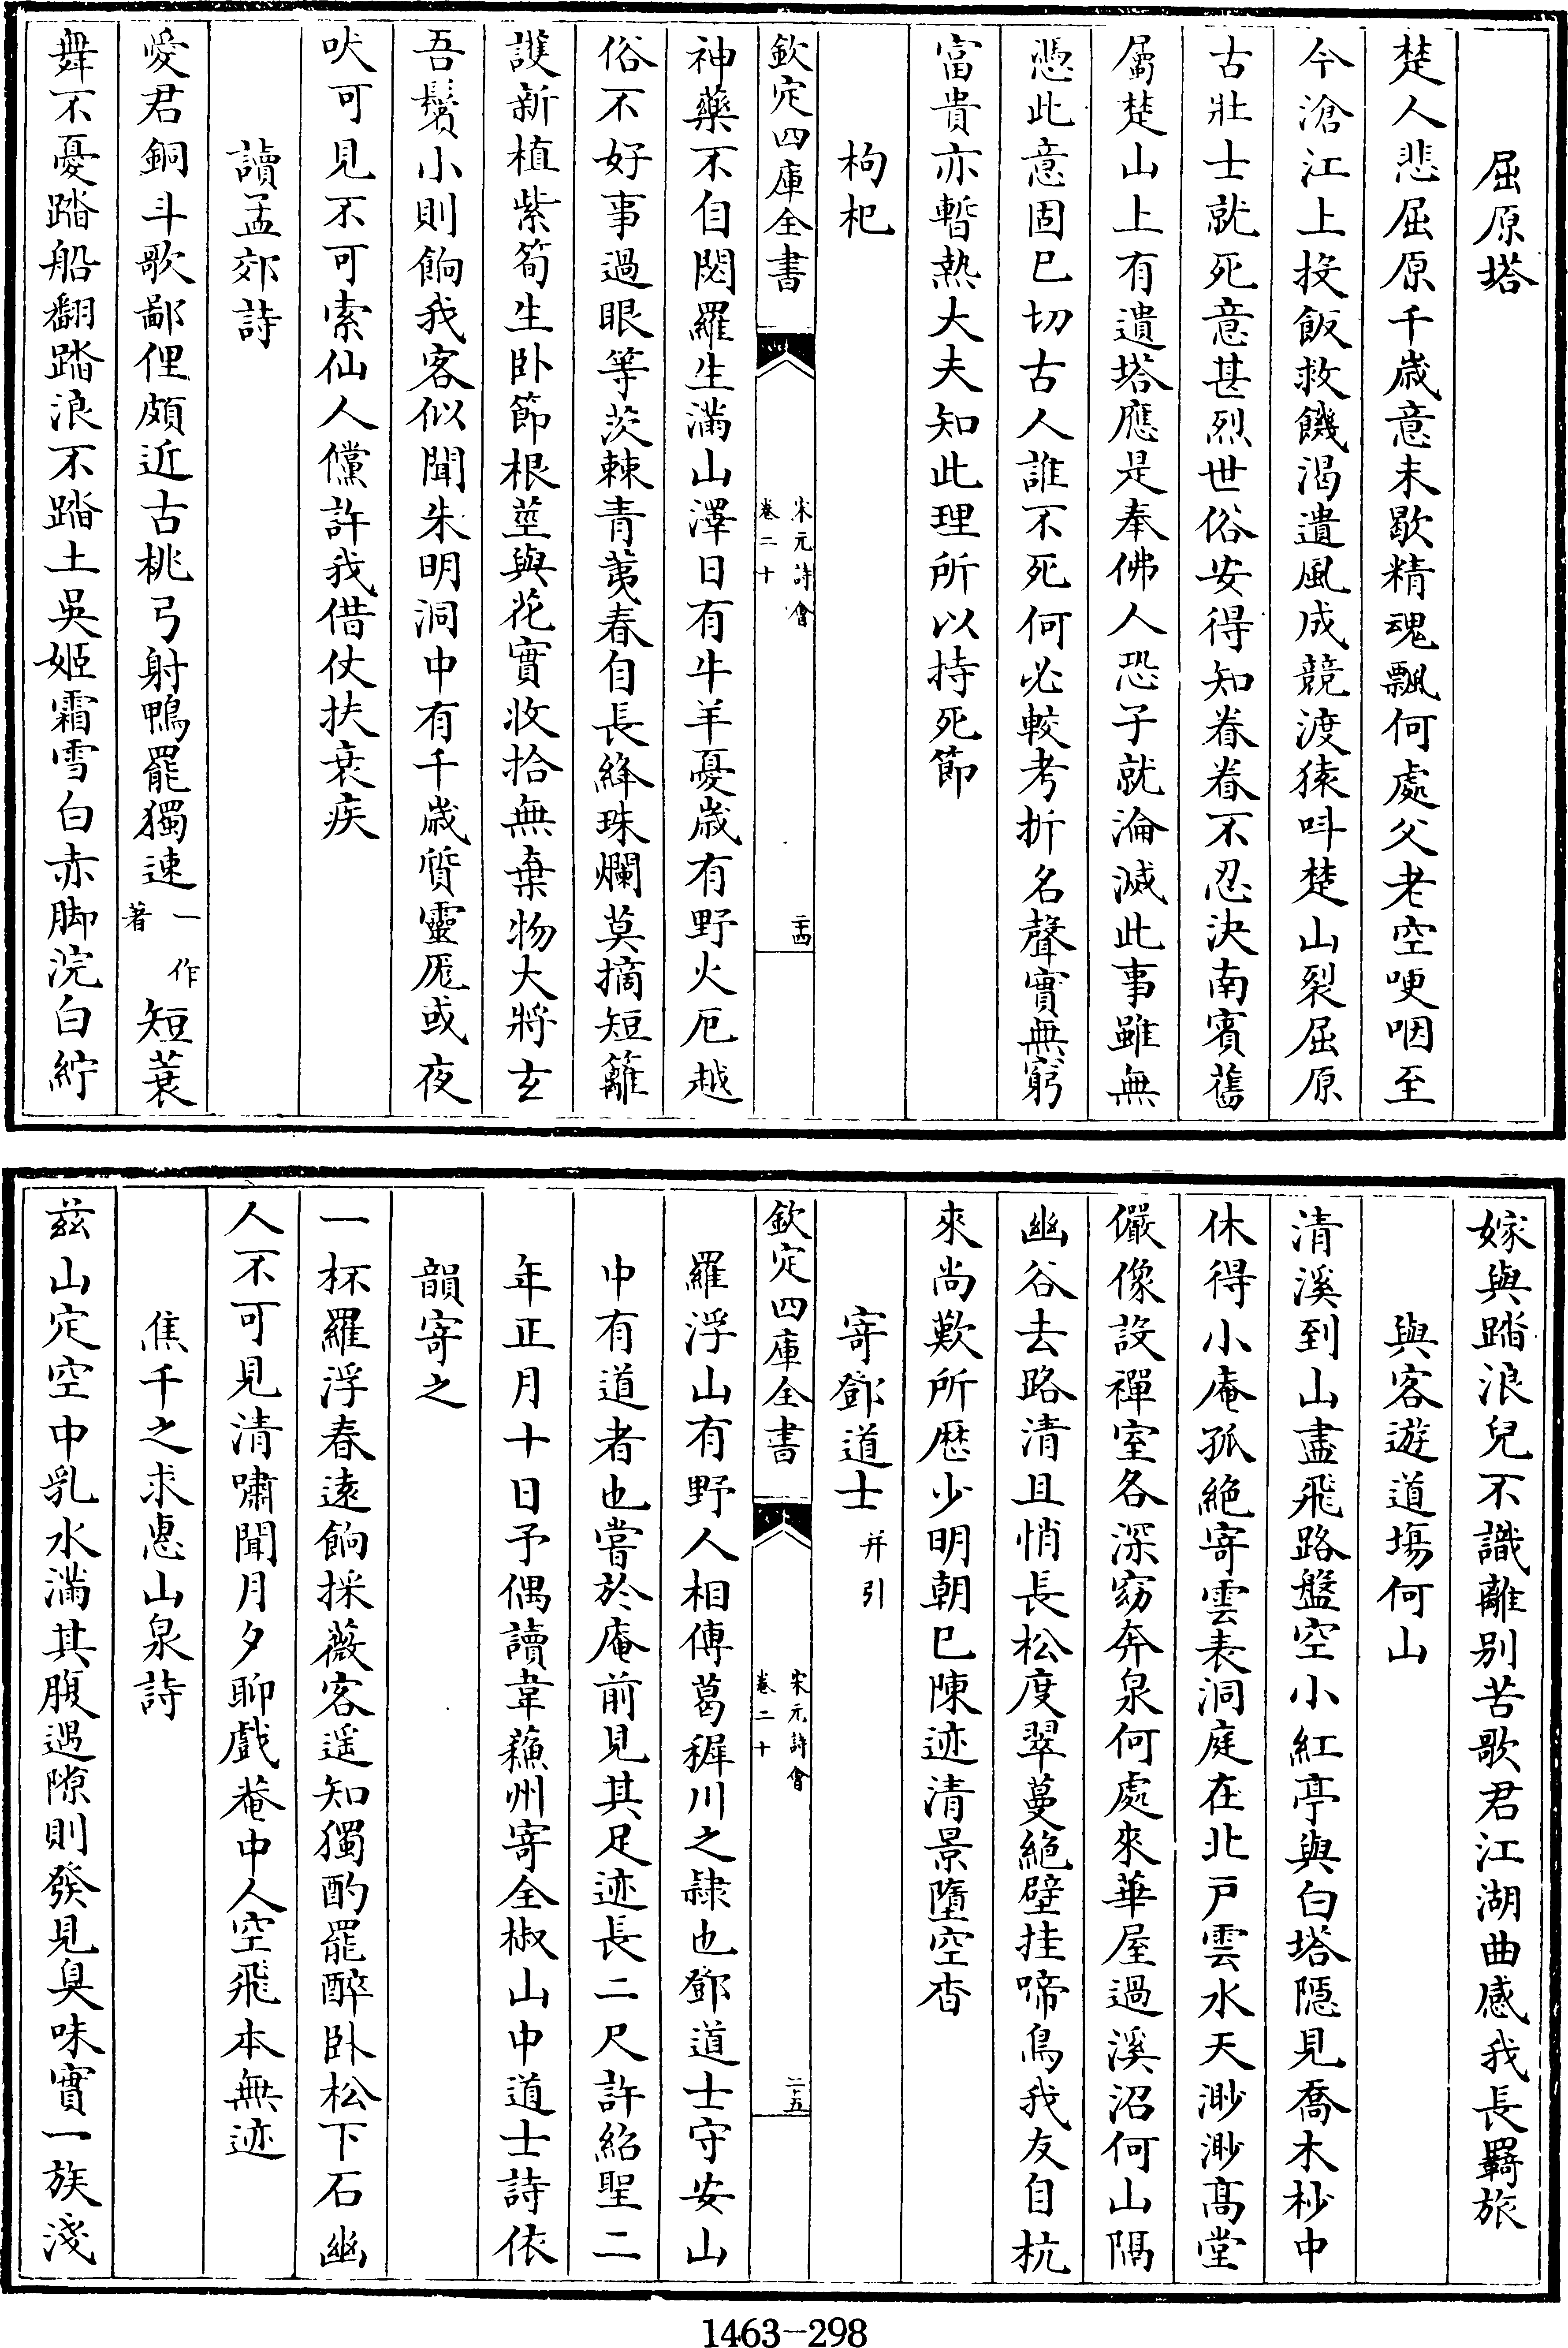 屈原塔
楚人悲屈原千歲意未歇精魂飄何處父老空哽咽至
今滄江上投飯救饑渴遺風成競渡猿呌楚山裂屈原
古壯士就死意甚烈世俗安得知眷眷不忍決南賓舊
屬楚山上有遺塔應是奉佛人恐子就淪滅此事雖無
憑此意固已切古人誰不死何必較考折名聲實無窮
富貴亦暫熱大夫知此理所以持死節
枸杞
欽定四庫全書
宋元詩會
卷二十
二十四
神藥不自閟羅生滿山澤日有牛羊憂歲有野火厄越
俗不好事過眼等茨棘青荑春自長絳珠爛莫摘短籬
護新植紫筍生卧節根莖與花實收拾無棄物大將玄
吾鬢小則餉我客似聞朱明洞中有千歲質靈厖或夜
吠可見不可索仙人儻許我借仗扶衰疾
讀孟郊詩
愛君銅斗歌鄙俚頗近古桃弓射鴨罷獨速一作著短蓑
舞不憂踏船翻踏浪不踏土吳姬霜雪白赤脚浣白紵
嫁與踏浪兒不識離别苦歌君江湖曲感我長羇旅
與客遊道場何山
清溪到山盡飛路盤空小紅亭與白塔隱見喬木杪中
休得小庵孤絶寄雲表洞庭在北戸雲水天渺渺髙堂
儼像設禪室各深窈奔泉何處來華屋過溪沼何山隔
幽谷去路清且悄長松度翠蔓絶壁挂啼鳥我友自杭
來尚歎所歴少明朝已陳迹清景墮空杳
寄鄧道士并引
欽定四庫全書
宋元詩會
卷二十
二十五
羅浮山有野人相傳葛稚川之隷也鄧道士守安山
中有道者也嘗於庵前見其足迹長二尺許紹聖二
年正月十日予偶讀韋蘓州寄全椒山中道士詩依
韻寄之
一杯羅浮春遠餉採薇客遥知獨酌罷醉卧松下石幽
人不可見清嘯聞月夕聊戲菴中人空飛本無迹
焦千之求惠山泉詩
兹山定空中乳水滿其腹遇隙則發見臭味實一族淺
1463-298